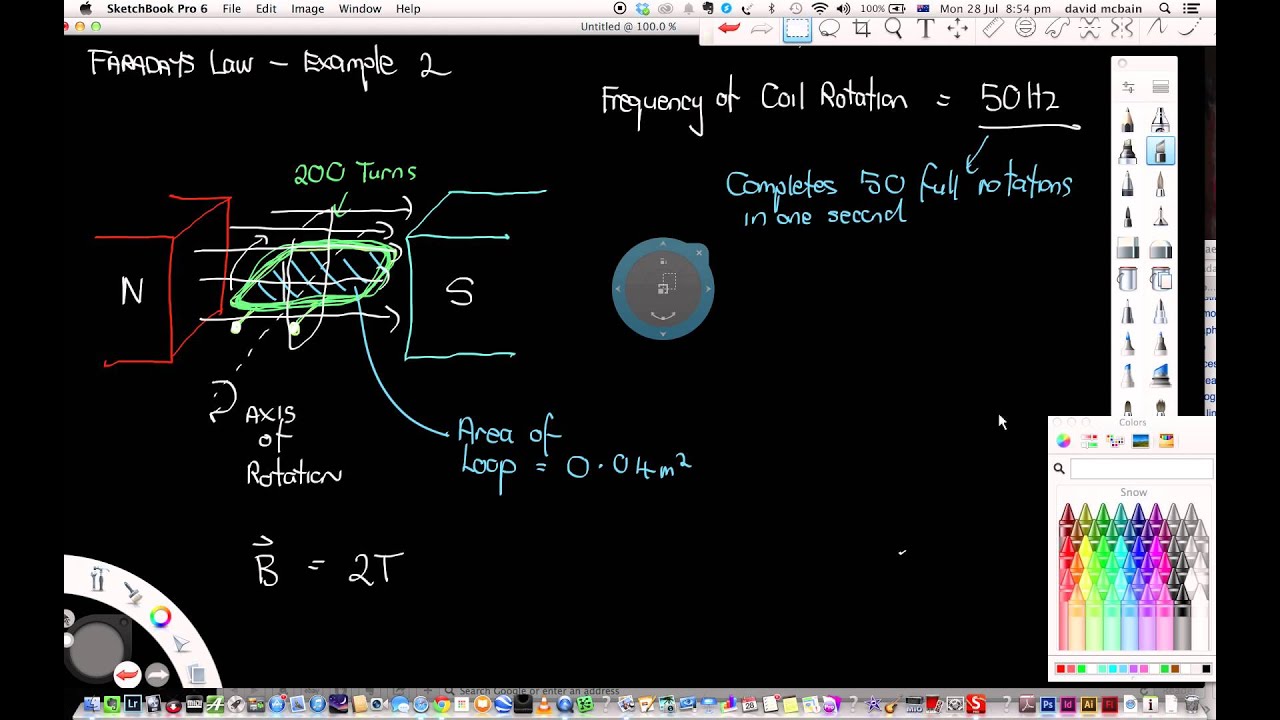 SketchBook Pro 6 File Edit Image Window Help
100% Mon 28 Jul 8:54 pm david mcbain
Untitled @ 100.0 %
FARADAYS Law - Example 2
Frequency of Coil Rotation = 50Hz
Completes 50 full rotations
in one second
200 Turns
N
S
AXIS
of
Rotation
Area of
Loop = 0.04m²
B = 2T
Colors
Snow
Search Google or enter an address